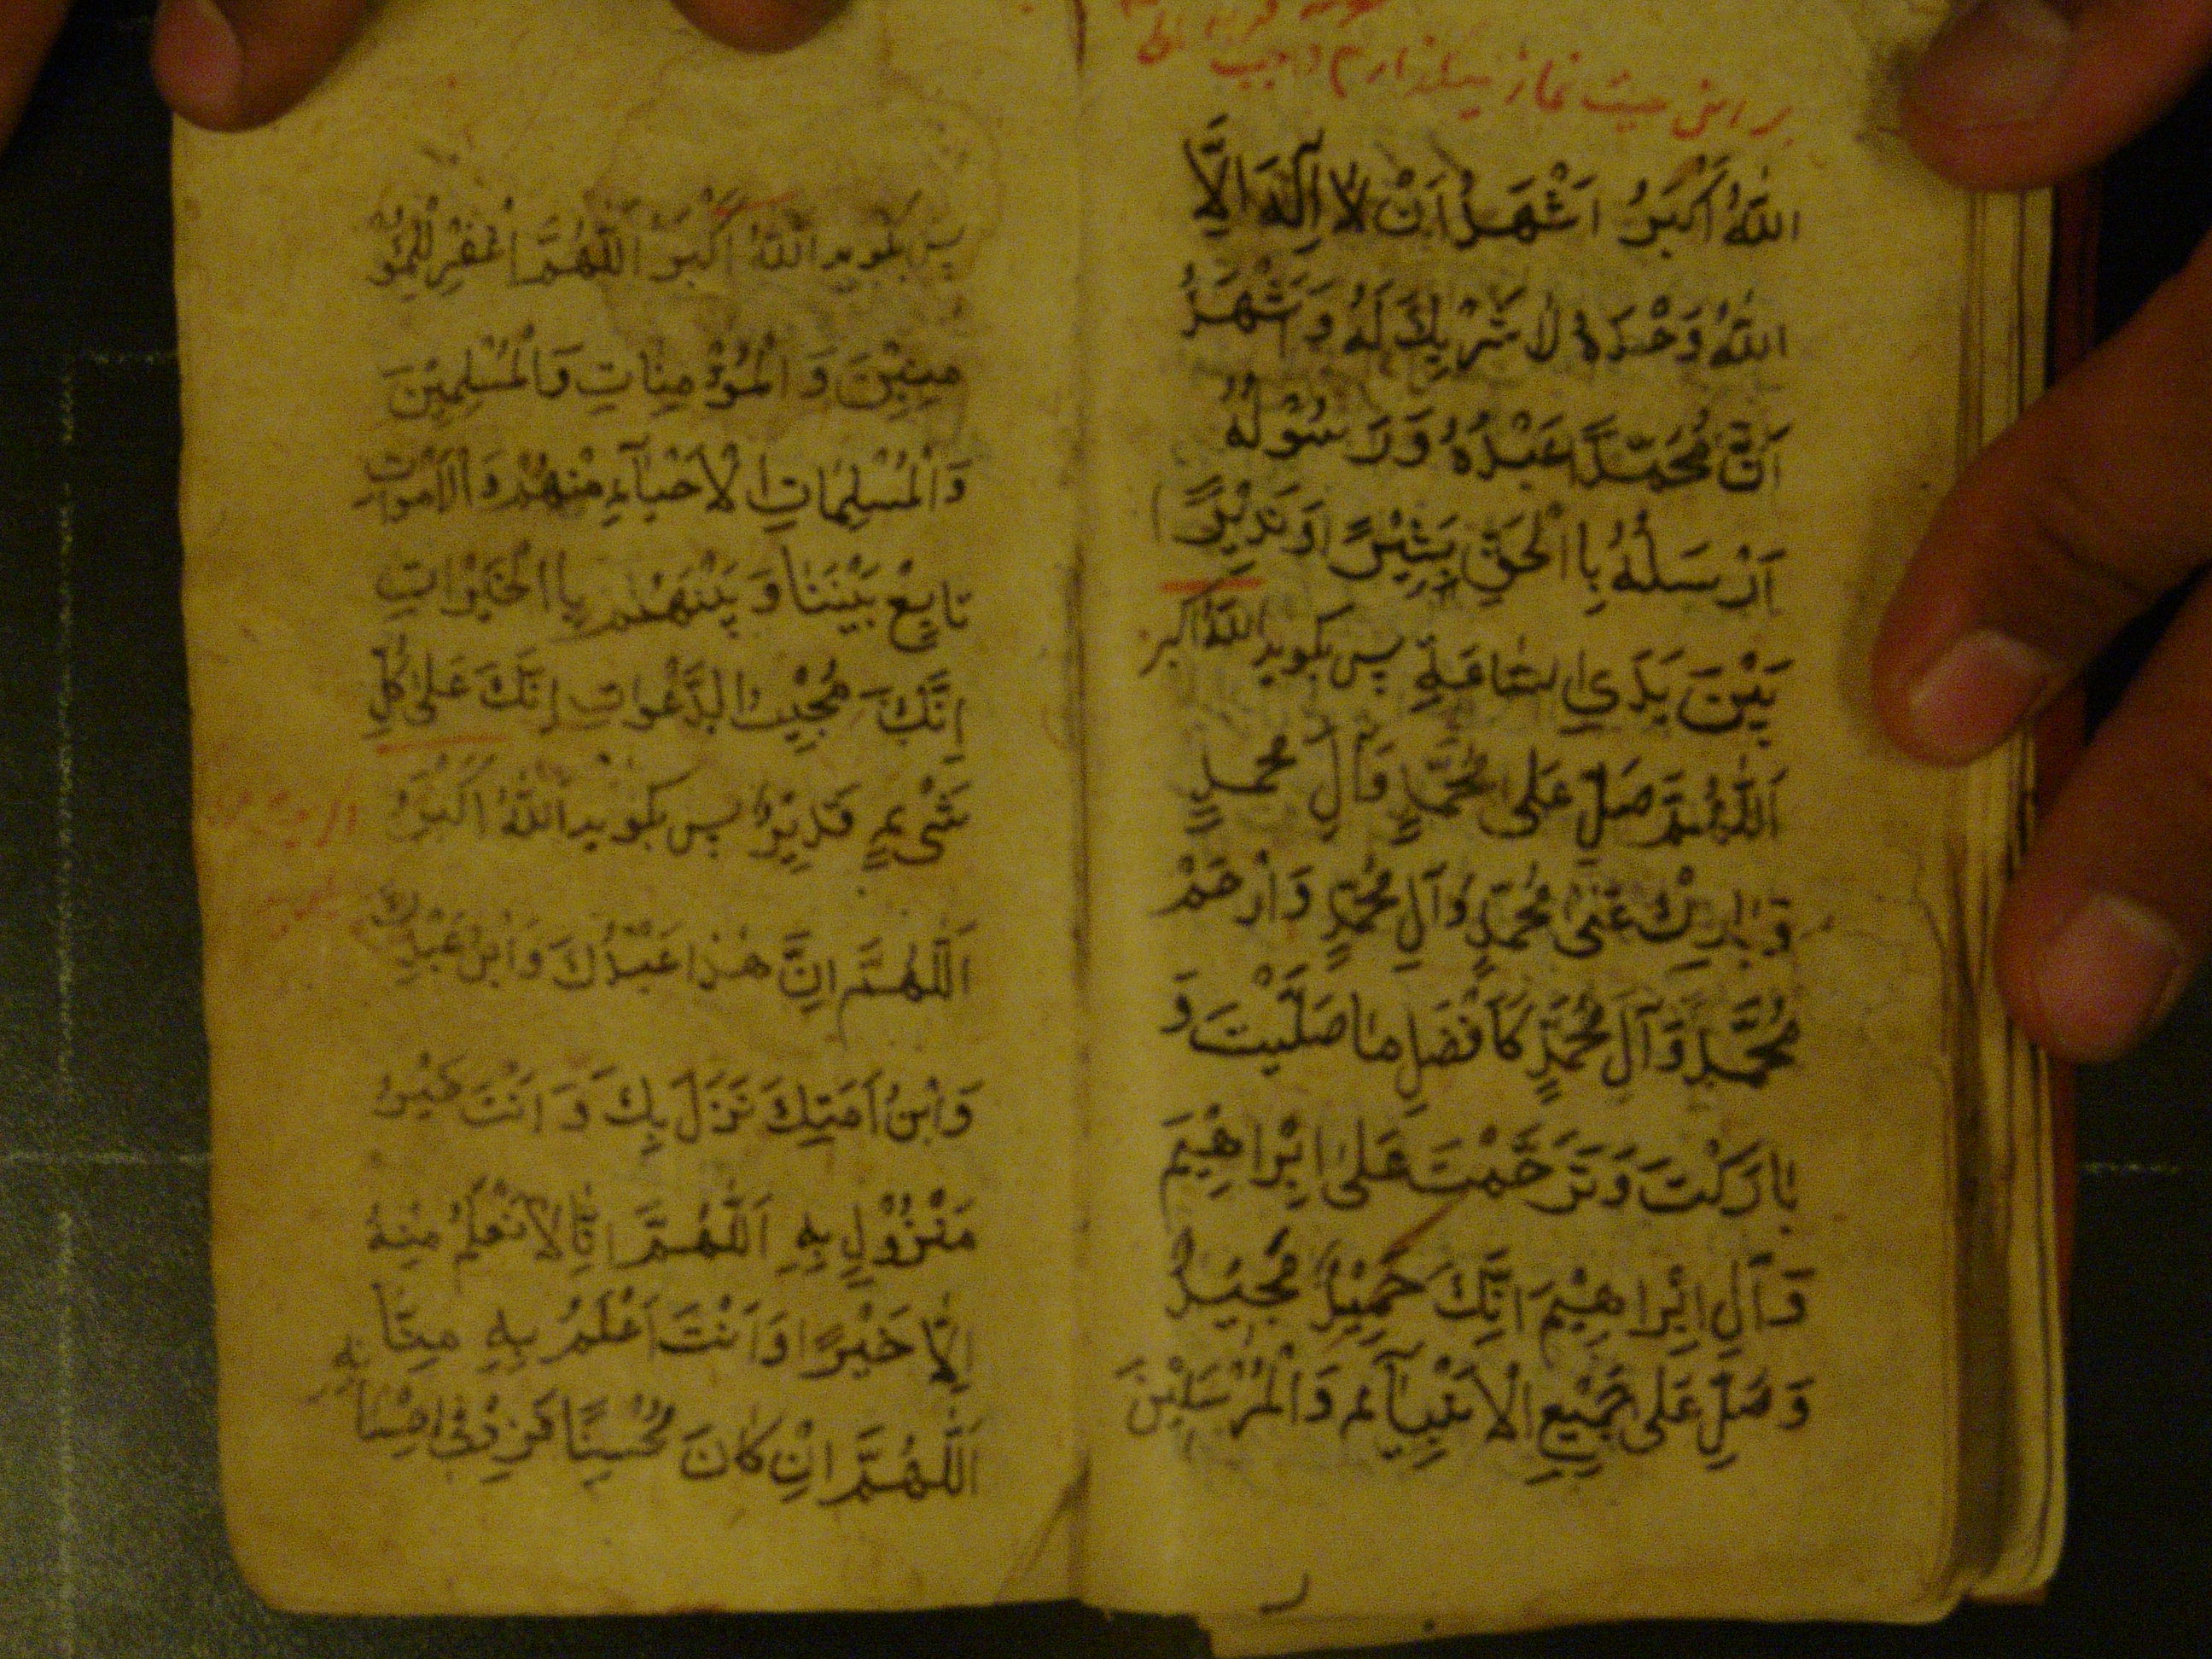 بر این میت نماز میگذارم واجب
اللّٰهُ اَكْبَرُ اَشْهَدُ اَنْ لَا اِلٰهَ اِلَّا
اللّٰهُ وَحْدَهُ لَا شَرِيكَ لَهُ وَ اَشْهَدُ
اَنَّ مُحَمَّدًا عَبْدُهُ وَ رَسُولُهُ
اَرْسَلَهُ بِا الْحَقِّ بَشِيْرًا وَ نَذِيْرًا
بَيْنَ يَدَيِ السّٰاعَةِ پس بكويد اللّٰهُ اكبر
اَللّٰهُمَّ صَلِّ عَلٰى مُحَمَّدٍ وَآلِ مُحمدٍ
وَ بٰارِكْ عَلٰى مُحَمَّدٍ وَآلِ مُحَمَّدٍ وَارْحَمْ
مُحَمَّدٍ وَ آلَ مُحَمَّدٍ كَاَفْضَلِ مٰا صَلَّيْتَ وَ
بٰارَكْتَ وَ تَرَحَّمْتَ عَلٰى اِبْرٰاهِيْمَ
وَ آلِ اِبْرٰاهِيْمَ اِنَّكَ حَمِيْدٌ مَجِيْدٌ
وَ صَلِّ عَلٰى جَمِيْعِ الْاَنْبِيٰآءِ وَالْمُرْسَلِيْنَ
پس بگويد اللّٰهُ اَكْبَرُ اَللّٰهُمَّ اغْفِرْ لِلْمُؤْ
مِنِيْنَ وَ الْمُؤْمِنٰاتِ وَالْمُسْلِمِيْنَ
وَالْمُسْلِمٰاتِ الْاَحْيٰآءِ مِنْهُمْ وَالْاَمْوٰاتِ
تٰابِعْ بَيْنَنٰا وَ بَيْنَهُمْ بِا الْخَيْرٰاتِ
اِنَّكَ مُجِيْبُ الدَّعَوٰاتِ اِنَّكَ عَلٰى كُلِّ
شَىْءٍ قَدِيْرٌ پس بكويد اَللّٰهُ اَكْبَرُ
اَللّٰهُمَّ اِنَّ هٰذٰا عَبْدُكَ وَابْنُ عَبْدِكَ
وَابْنُ اَمَتِكَ نَزَلَ بِكَ وَ اَنْتَ خَيْرُ
مَنْزُوْلٍ بِهِ اَللّٰهُمَّ اِنّٰا لَا نَعْلَمُ مِنْهُ
اِلَّا خَيْرًا وَ اَنْتَ اَعْلَمُ بِهِ مِنّٰا
اَللّٰهُمَّ اِنْ كٰانَ مُحْسِنًا فَزِدْ فِى اِحْسٰانِهِ